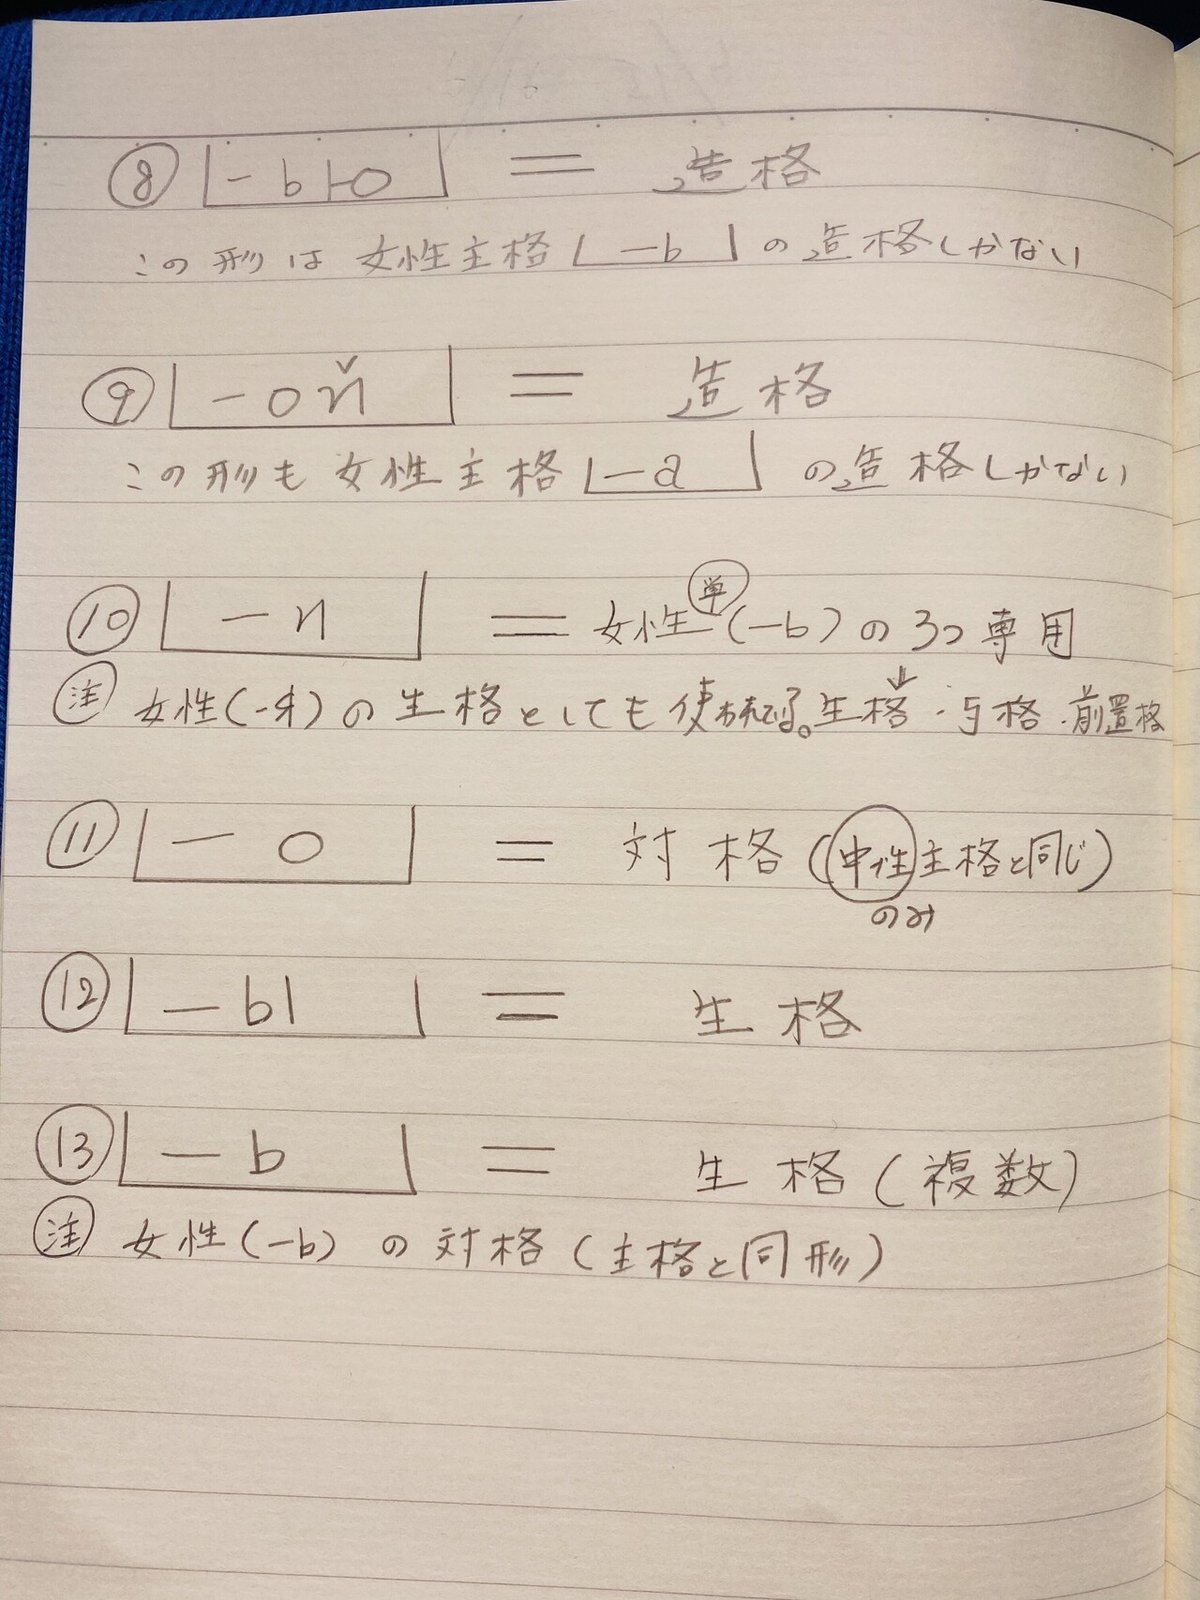 ⑧ -ью = 造格
この形は女性主格 -ь の造格しかない
⑨ -ой = 造格
この形も女性主格 -а の造格しかない
⑩ -и = 女性㊥(-ь)の3つ専用
㊟ 女性(-я)の生格としても使われてる。生格・与格・前置格
⑪ -о = 対格(中性主格と同じ)
のみ
⑫ -ы = 生格
⑬ -ь = 生格(複数)
㊟ 女性(-ь)の対格(主格と同形)